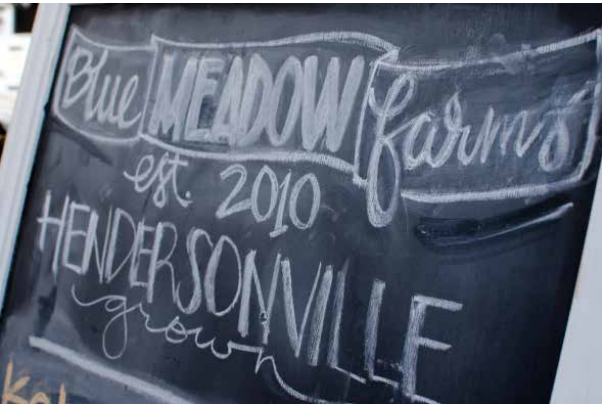 Blue MEADOW farms
est. 2010
HENDERSONVILLE
grown